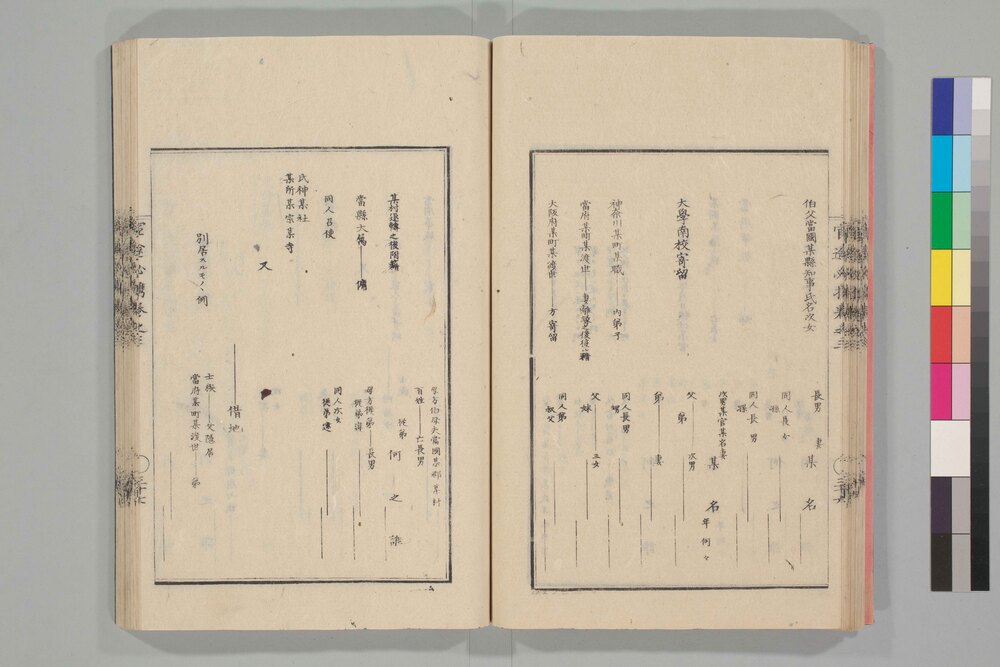 伯父當國某縣知事氏名次女
長男
妻
某
名
同人長女
孫
同人長男
孫
大學南校寄留
次男某官某名妻
某
名
年何々
父
弟
次男
神奈川某町某職
内弟子
弟
妻
當府某町某渡世
妻離縁之後復籍
同人長男
甥
父
妹
三女
大阪府某町某渡世
方寄留
同人弟
叔父
母方伯母夫當國某郡某村
百姓
亡長男
某村退轉之後附籍
從弟
何
之
誰
當縣大属
母方從弟
長男
從弟違
同人召使
同人次女
從弟違
氏神某社
某所某宗某寺
又
別居スルモノヽ例
借地
士族
父隱居
當府某町某渡世
弟